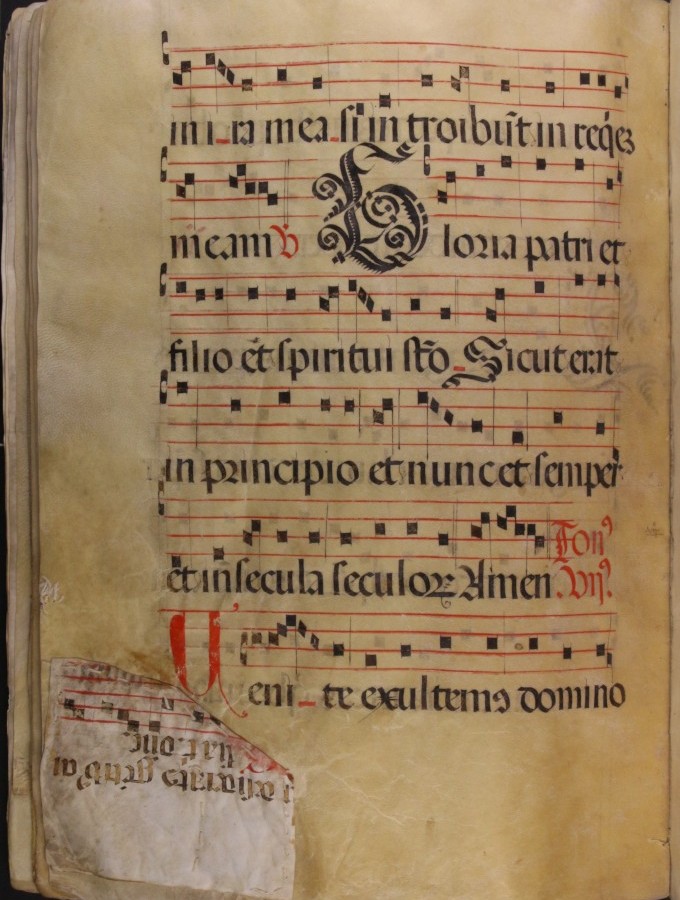 in i_ra mea_si in troibūt in reqēz
meam V Gloria patri et
filio et spiritui sto_Sicut erat
in principio et nunc et semper
et in secula seculorꝝ Amen Tonꝰ
.vij.
Ueni_te exultemꝰ domino